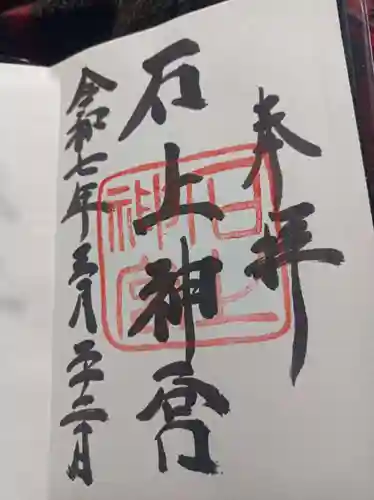 奉拝
石上神宮
令和七年三月二十二日
石上
神宮